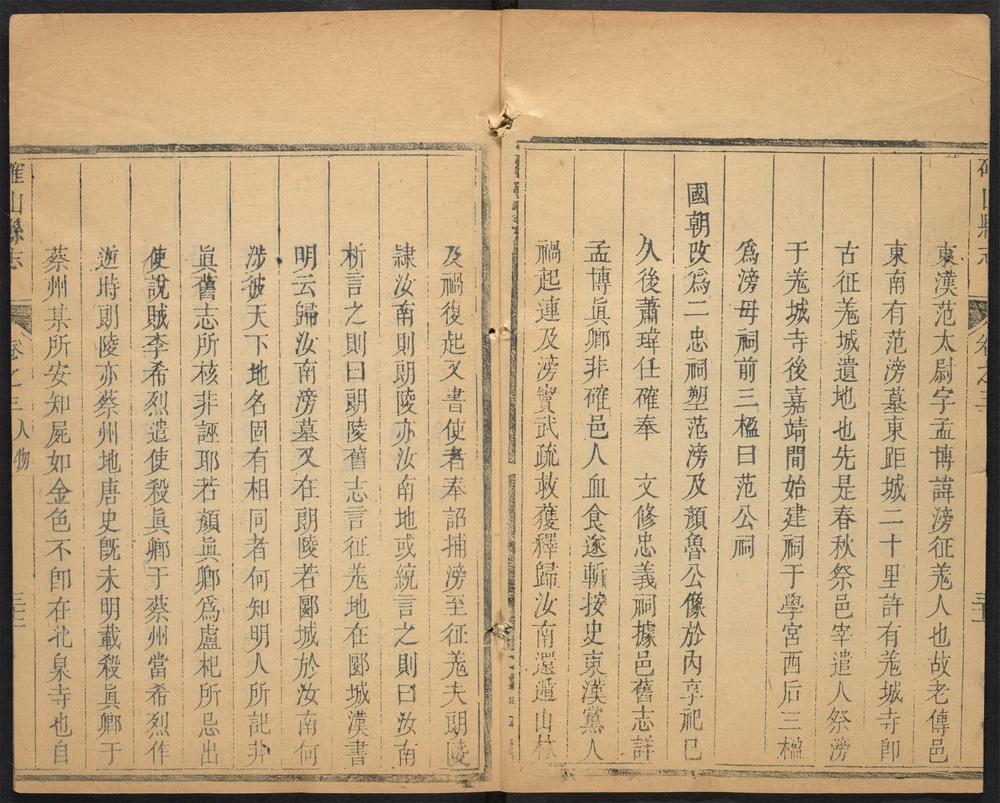 確山縣志
卷之三
三十二
東漢范太尉字孟博諱滂征羗人也故老傳邑
東南有范滂墓東距城二十里許有羗城寺卽
古征羗城遺地也先是春秋祭邑宰遣人祭滂
于羗城寺後嘉靖間始建祠于學宮西后三楹
爲滂母祠前三楹曰范公祠
國朝改爲二忠祠塑范滂及顏魯公像於內享祀已
久後蕭瑋任確奉 文修忠義祠據邑舊志詳
孟博眞卿非確邑人血食遂斬按史東漢黨人
禍起連及滂竇武疏救獲釋歸汝南還遁山林
及禍復起又書使者奉詔捕滂至征羗夫朗陵
隸汝南則朗陵亦汝南地或統言之則曰汝南
析言之則曰朗陵舊志言征羗地在郾城漢書
明云歸汝南滂墓又在朗陵若郾城於汝南何
涉彼天下地名固有相同者何知明人所記非
眞舊志所核非誣耶若顏眞卿爲盧杞所忌出
使說賊李希烈遣使殺眞卿于蔡州當希烈作
逆時則陵亦蔡州地唐史旣未明載殺眞卿于
蔡州某所安知屍如金色不卽在北泉寺也自
確山縣志
卷之三 人物
三十二